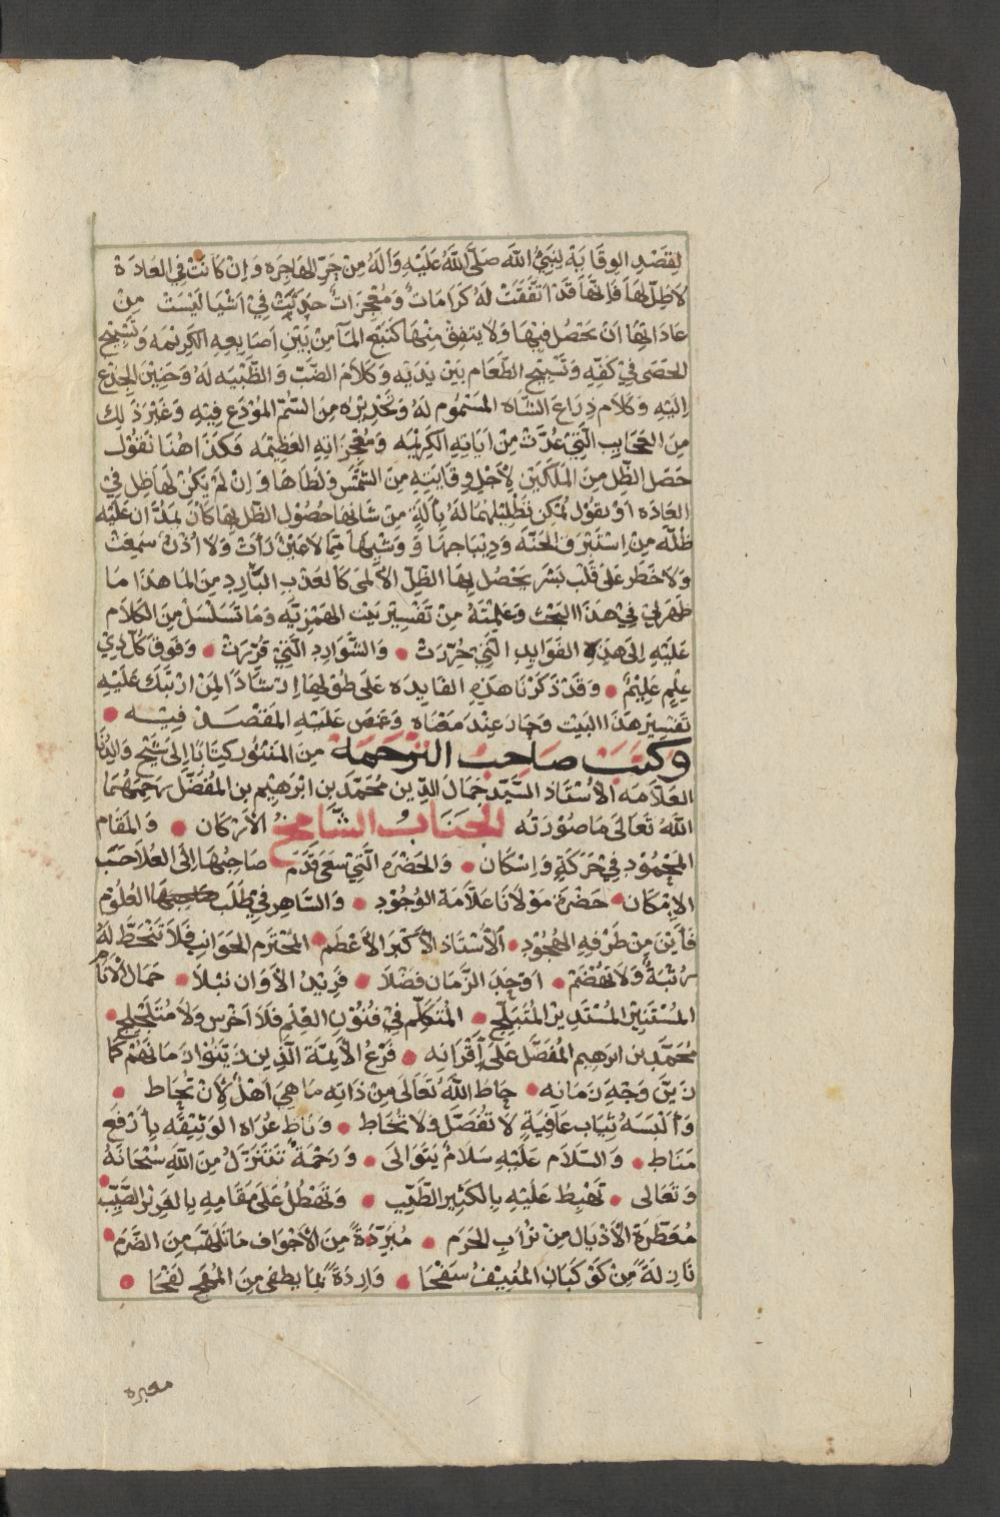 لقصد الوقاية لنبي الله صلى الله عليه وآله من حر الهاجره وان كانت في العادة
لا ظل لها فانها قد اتفقت له كرامات ومعجزات حيرت في اشيا ليست من
عاداتها ان يحصل فيها ولا يتفق منها كنبع المآ من بين اصابعه الكريمه وتسبيح
الحصى في كفه وتسبيح الطعام بين يديه وكلام الضب والظبيه له وحنين الجذع
اليه وكلام ذراع الشاه المسموم له وتحذيره من السم المودع فيه وغير ذلك
من العجايب التي عدت من اياته الكريمه ومعجزاته العظيمه فكذا هنا نقول
حصل الظل من الملكين لاجل وقايته من الشمس ولظاها وان لم يكن لها ظل في
العاده او نقول يمكن تظليلهما له بآلة من شانها حصول الظل بها كان يمدان عليه
ظلة من استبرق الجنة وديباجها وشبهها مما لا عين رات ولا اذن سمعت
ولا خطر على قلب بشر يحصل بها الظل الالمى كالعذب البارد من الما هذا ما
ظهر لي في هذا البحث وعلمته من تفسير بيت الهمزيه وما تسلسل من الكلام
عليه الى هذه الفوايد التي حررت • والشوارد التي قررت • وفوق كل ذي
علم عليم • وقد ذكرنا هذه الفايده على طولها ارشاداً لمن ارتبك عليه
تفسير هذا البيت وحار عند معناه وغمض عليه المقصد فيه •
وكتب صاحب الترجمة من المنثور كتابا الى شيخ والدنا
العلامه الاستاذ السيد جمال الدين محمد بن ابرهيم بن المفضل رحمهما
الله تعالى ما صورته الجناب الشامخ الاركان • والمقام
المحمود في حركة واسكان • والحضره التي سعى قدم صاحبها الى العلا حسب
الامكان • حضرة مولانا علامة الوجود • والساهر في طلب العلوم
فاين من طرفه الهجود • الاستاذ الاكبر الاعظم • المحترم الجوانب فلا تنحط له
رتبة ولا تهضم • اوحد الزمان فضلا • فريد الاوان نبلا • جمال الانام
المستنير المستدير المتبلج • المتكلم في فنون العلم فلا اخرس ولا متلجلج •
محمد بن ابرهيم المفضل على اقرانه • فرع الائمة الذين زينوا زمانهم كما
زين وجه زمانه • حاط الله تعالى من ذاته ما هي اهل لان تحاط •
والبسه ثياب عافية لا تفصل ولا تخاط • وناط عراه الوثيقه بارفع
مناط • والسلام عليه سلام يتوالى • ورحمة تتنزل من الله سبحانه
وتعالى • تهبط عليه بالكثير الطيب • وتهطل على مقامه بالغزير الصيب •
معطرة الاذيال من تراب الحرم • مبردة من الاجواف ما تلهب من الضرم •
نازلة من كوكبان المنيف سفحا • واردة بما يطفى من المهج لفحا •